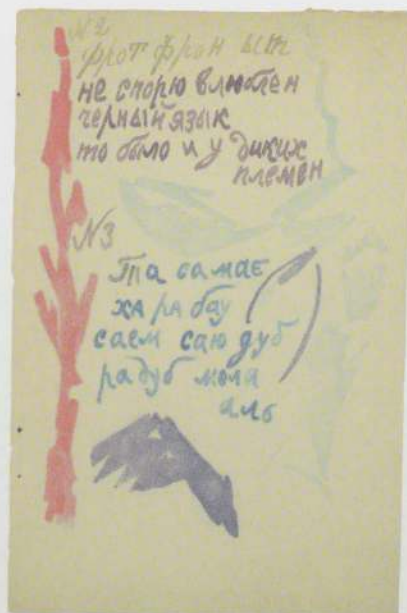 №2
фрот фрон ыт
не спорю влюблен
черный язык
то было и у диких
племен
№3
Та са мае
ха ра бау
саем сию дуб
радуб мола
аль